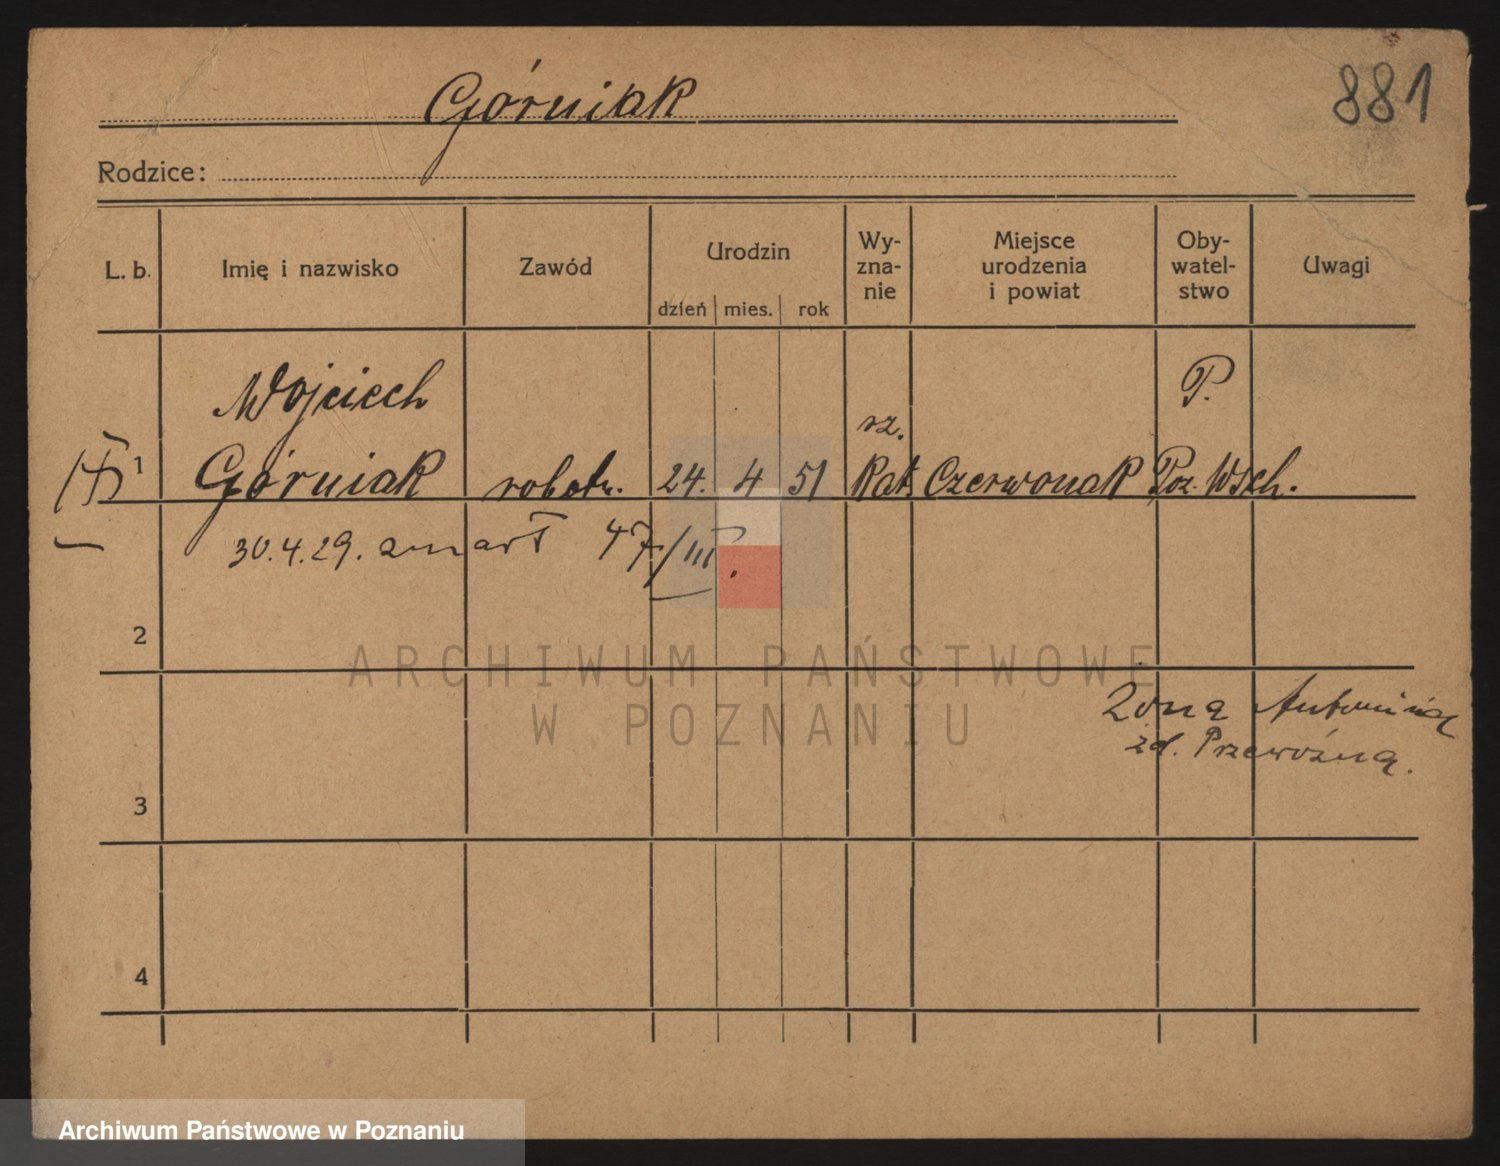 881
Górniak
Rodzice:
L. b. Imię i nazwisko Zawód Urodzin dzień mies. rok Wy-zna-nie Miejsce urodzenia i powiat Oby-watel-stwo Uwagi
Wojciech P.
rz.
1 Górniak robotn. 24. 4 51 Kat. Czerwonak Poz. Wsch.
30.4.29. zmarł 47/III.
2
ARCHIWUM PAŃSTWOWE
W POZNANIU
Żona Antonina
zd. Przewoźna.
3
4
Archiwum Państwowe w Poznaniu